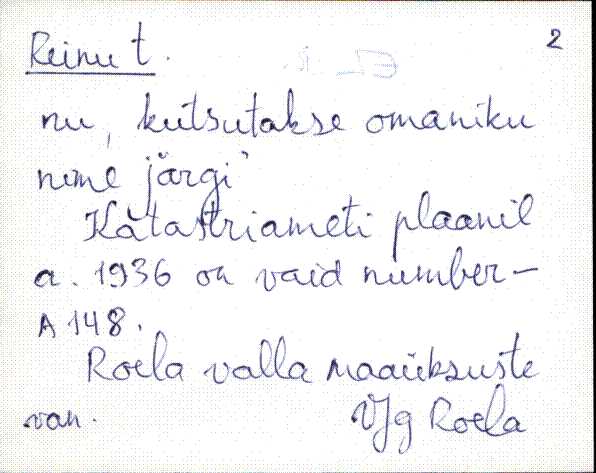 Reinu t.
2
nu, kutsutakse omaniku
nime järgi"
Katastriameti plaanil
a. 1936 on vaid number -
A 148.
Roela valla maaüksuste
van.
VJg Roela